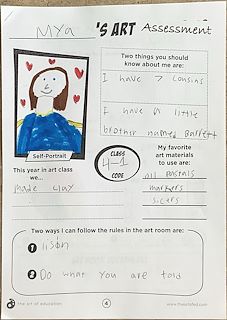 Mya 'S ART Assessment
Two things you should
know about me are:
I have 7 cousins
I have a little
brother named Barrett
Self-Portrait
CLASS
4-1
CODE
My favorite
art materials
to use are:
oil pastals
markers
sicers
This year in art class
we...
made clay
Two ways I can follow the rules in the art room are:
1 lisōn
2 Do what you are told
the art of education
4
www.theartofed.com